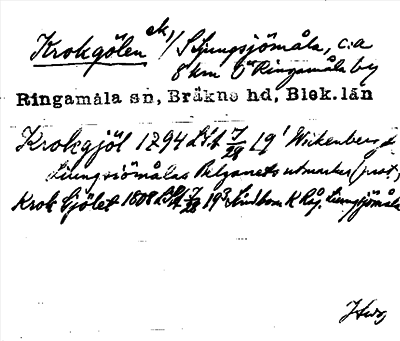 Krokgölen ek, / S Ljungsjömåla, c:a
8 km Ö Ringamåla by
Ringamåla sn, Bräkne hd, Blek. län
Krokgjöl 1794 LSA J/29 19¹ Wickenberg d
Ljungsjömålas utmarker (prot.)
Krok Gjölet 1808 19³ Lindbom K Råg. Ljungsjömåla